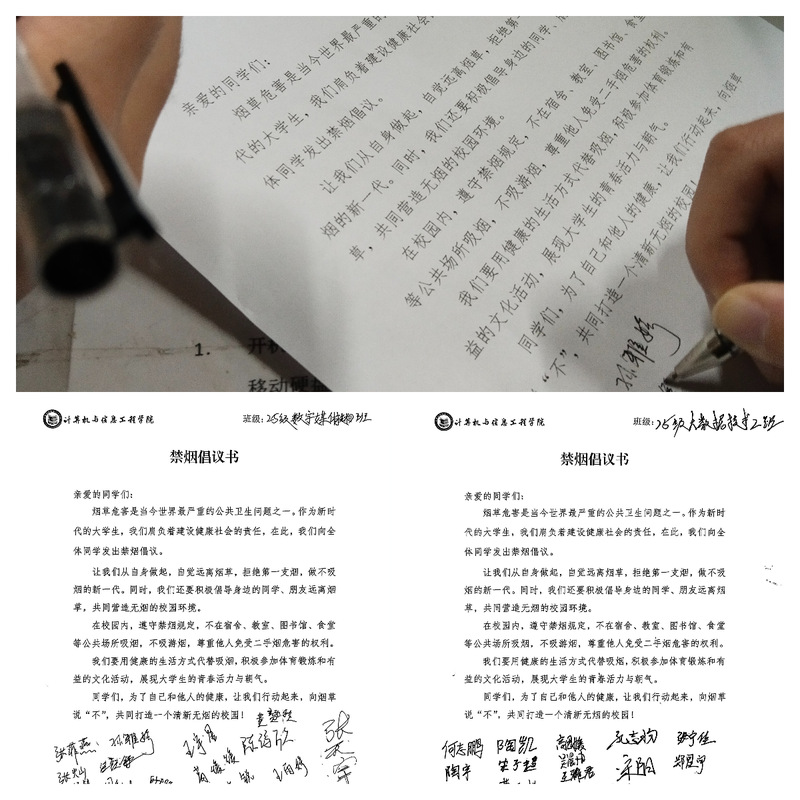 亲爱的同学们：
烟草危害是当今世界最严重的
代的大学生，我们肩负着建设健康社会
体同学发出禁烟倡议。
让我们从自身做起，自觉远离烟草，拒绝第一
烟的新一代。同时，我们还要积极倡导身边的同学、
草，共同营造无烟的校园环境。
在校园内，遵守禁烟规定，不在宿舍、教室、图书馆、食堂
等公共场所吸烟，不吸游烟，尊重他人免受二手烟危害的权利。
我们要用健康的生活方式代替吸烟，积极参加体育锻炼和有
益的文化活动，展现大学生的青春活力与朝气。
同学们，为了自己和他人的健康，让我们行动起来，向烟草
“不”，共同打造一个清新无烟的校园！
孙雅婷
1. 开机
移动硬
计算机与信息工程学院
班级：25级数字媒体
班
禁烟倡议书
亲爱的同学们：
烟草危害是当今世界最严重的公共卫生问题之一。作为新时
代的大学生，我们肩负着建设健康社会的责任，在此，我们向全
体同学发出禁烟倡议。
让我们从自身做起，自觉远离烟草，拒绝第一支烟，做不吸
烟的新一代。同时，我们还要积极倡导身边的同学、朋友远离烟
草，共同营造无烟的校园环境。
在校园内，遵守禁烟规定，不在宿舍、教室、图书馆、食堂
等公共场所吸烟，不吸游烟，尊重他人免受二手烟危害的权利。
我们要用健康的生活方式代替吸烟，积极参加体育锻炼和有
益的文化活动，展现大学生的青春活力与朝气。
同学们，为了自己和他人的健康，让我们行动起来，向烟草
说“不”，共同打造一个清新无烟的校园！
孙雅婷
计算机与信息工程学院
班级：25级大数据技术2班
禁烟倡议书
亲爱的同学们：
烟草危害是当今世界最严重的公共卫生问题之一。作为新时
代的大学生，我们肩负着建设健康社会的责任，在此，我们向全
体同学发出禁烟倡议。
让我们从自身做起，自觉远离烟草，拒绝第一支烟，做不吸
烟的新一代。同时，我们还要积极倡导身边的同学、朋友远离烟
草，共同营造无烟的校园环境。
在校园内，遵守禁烟规定，不在宿舍、教室、图书馆、食堂
等公共场所吸烟，不吸游烟，尊重他人免受二手烟危害的权利。
我们要用健康的生活方式代替吸烟，积极参加体育锻炼和有
益的文化活动，展现大学生的青春活力与朝气。
同学们，为了自己和他人的健康，让我们行动起来，向烟草
说“不”，共同打造一个清新无烟的校园！
何志鹏 陶凯
陶宇 宋阳